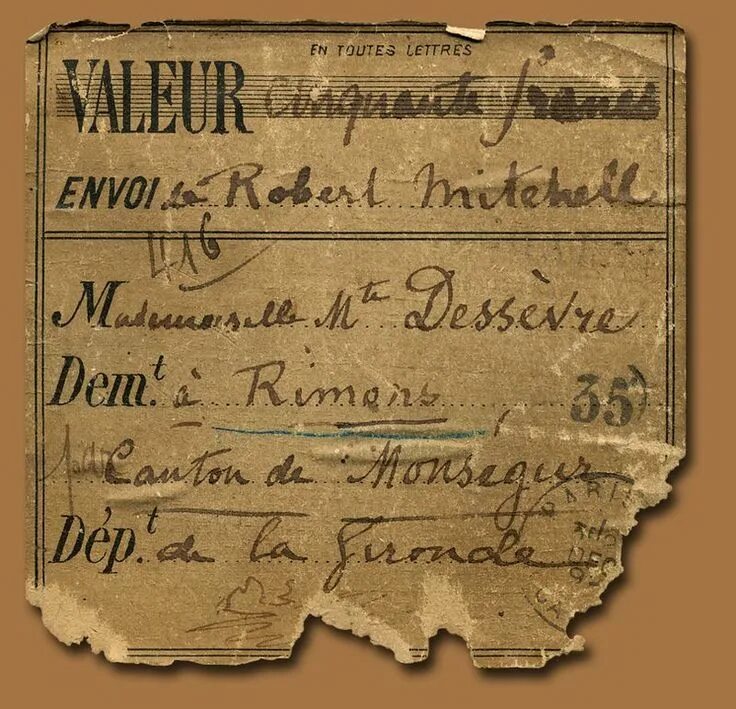 EN TOUTES LETTRES
VALEUR Cinquante francs
ENVOI de Robert Mitchell
416
Mademoiselle Mte Dessèvre
Demt. à Rimons
35
par Canton de Monségur
Dépt. de la Gironde
PARIS
DEC